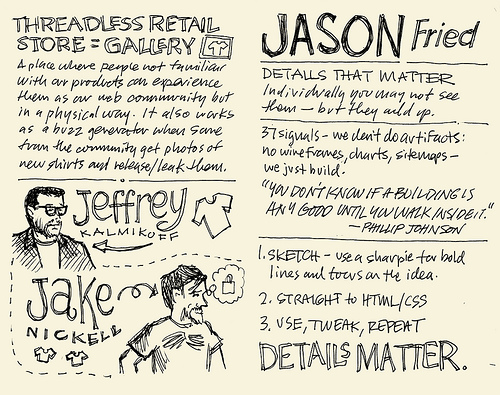 THREADLESS RETAIL
STORE = GALLERY
A place where people not familiar
with our products can experience
them as our web community but
in a physical way. It also works
as a buzz generator when some
from the community get photos of
new shirts and release/leak them.
Jeffrey
KALMIKOFF
Jake
NICKELL
JASON Fried
DETAILS THAT MATTER
Individually you may not see
them — but they add up.
37signals - we don't do artifacts:
no wireframes, charts, sitemaps -
we just build.
"YOU DON'T KNOW IF A BUILDING IS
ANY GOOD UNTIL YOU WALK INSIDE IT."
— PHILLIP JOHNSON
1. SKETCH - use a sharpie for bold
lines and focus on the idea.
2. STRAIGHT to HTML/CSS
3. USE, TWEAK, REPEAT
DETAILS MATTER.